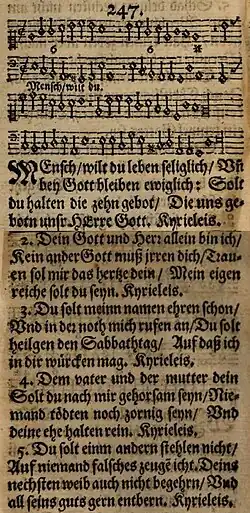 247.
6 6
Mensch/ wilt du.
MEnsch/ wilt du leben seliglich/ Vñ
bey Gott bleiben ewiglich: Solt
du halten die zehn gebot/ Die uns ge-
botn unsr HErre Gott. Kyrieleis.
2. Dein Gott und Herr allein bin ich/
Kein ander Gott muß jrren dich/ Trau-
en sol mir das hertze dein/ Mein eigen
reiche solt du seyn. Kyrieleis.
3. Du solt meinn namen ehren schon/
Vnd in der noth mich rufen an/ Du solt
heilgen den Sabbathtag/ Auf daß ich
in dir würcken mag. Kyrieleis.
4. Dem vater und der mutter dein
Solt du nach mir gehorsam seyn/ Nie-
mand tödten noch zornig seyn/ Vnd
deine ehe halten rein. Kyrieleis.
5. Du solt einm andern stehlen nicht/
Auf niemand falsches zeuge icht. Deins
nechsten weib auch nicht begehrn/ Vnd
all seins guts gern entbern. Kyrieleis.